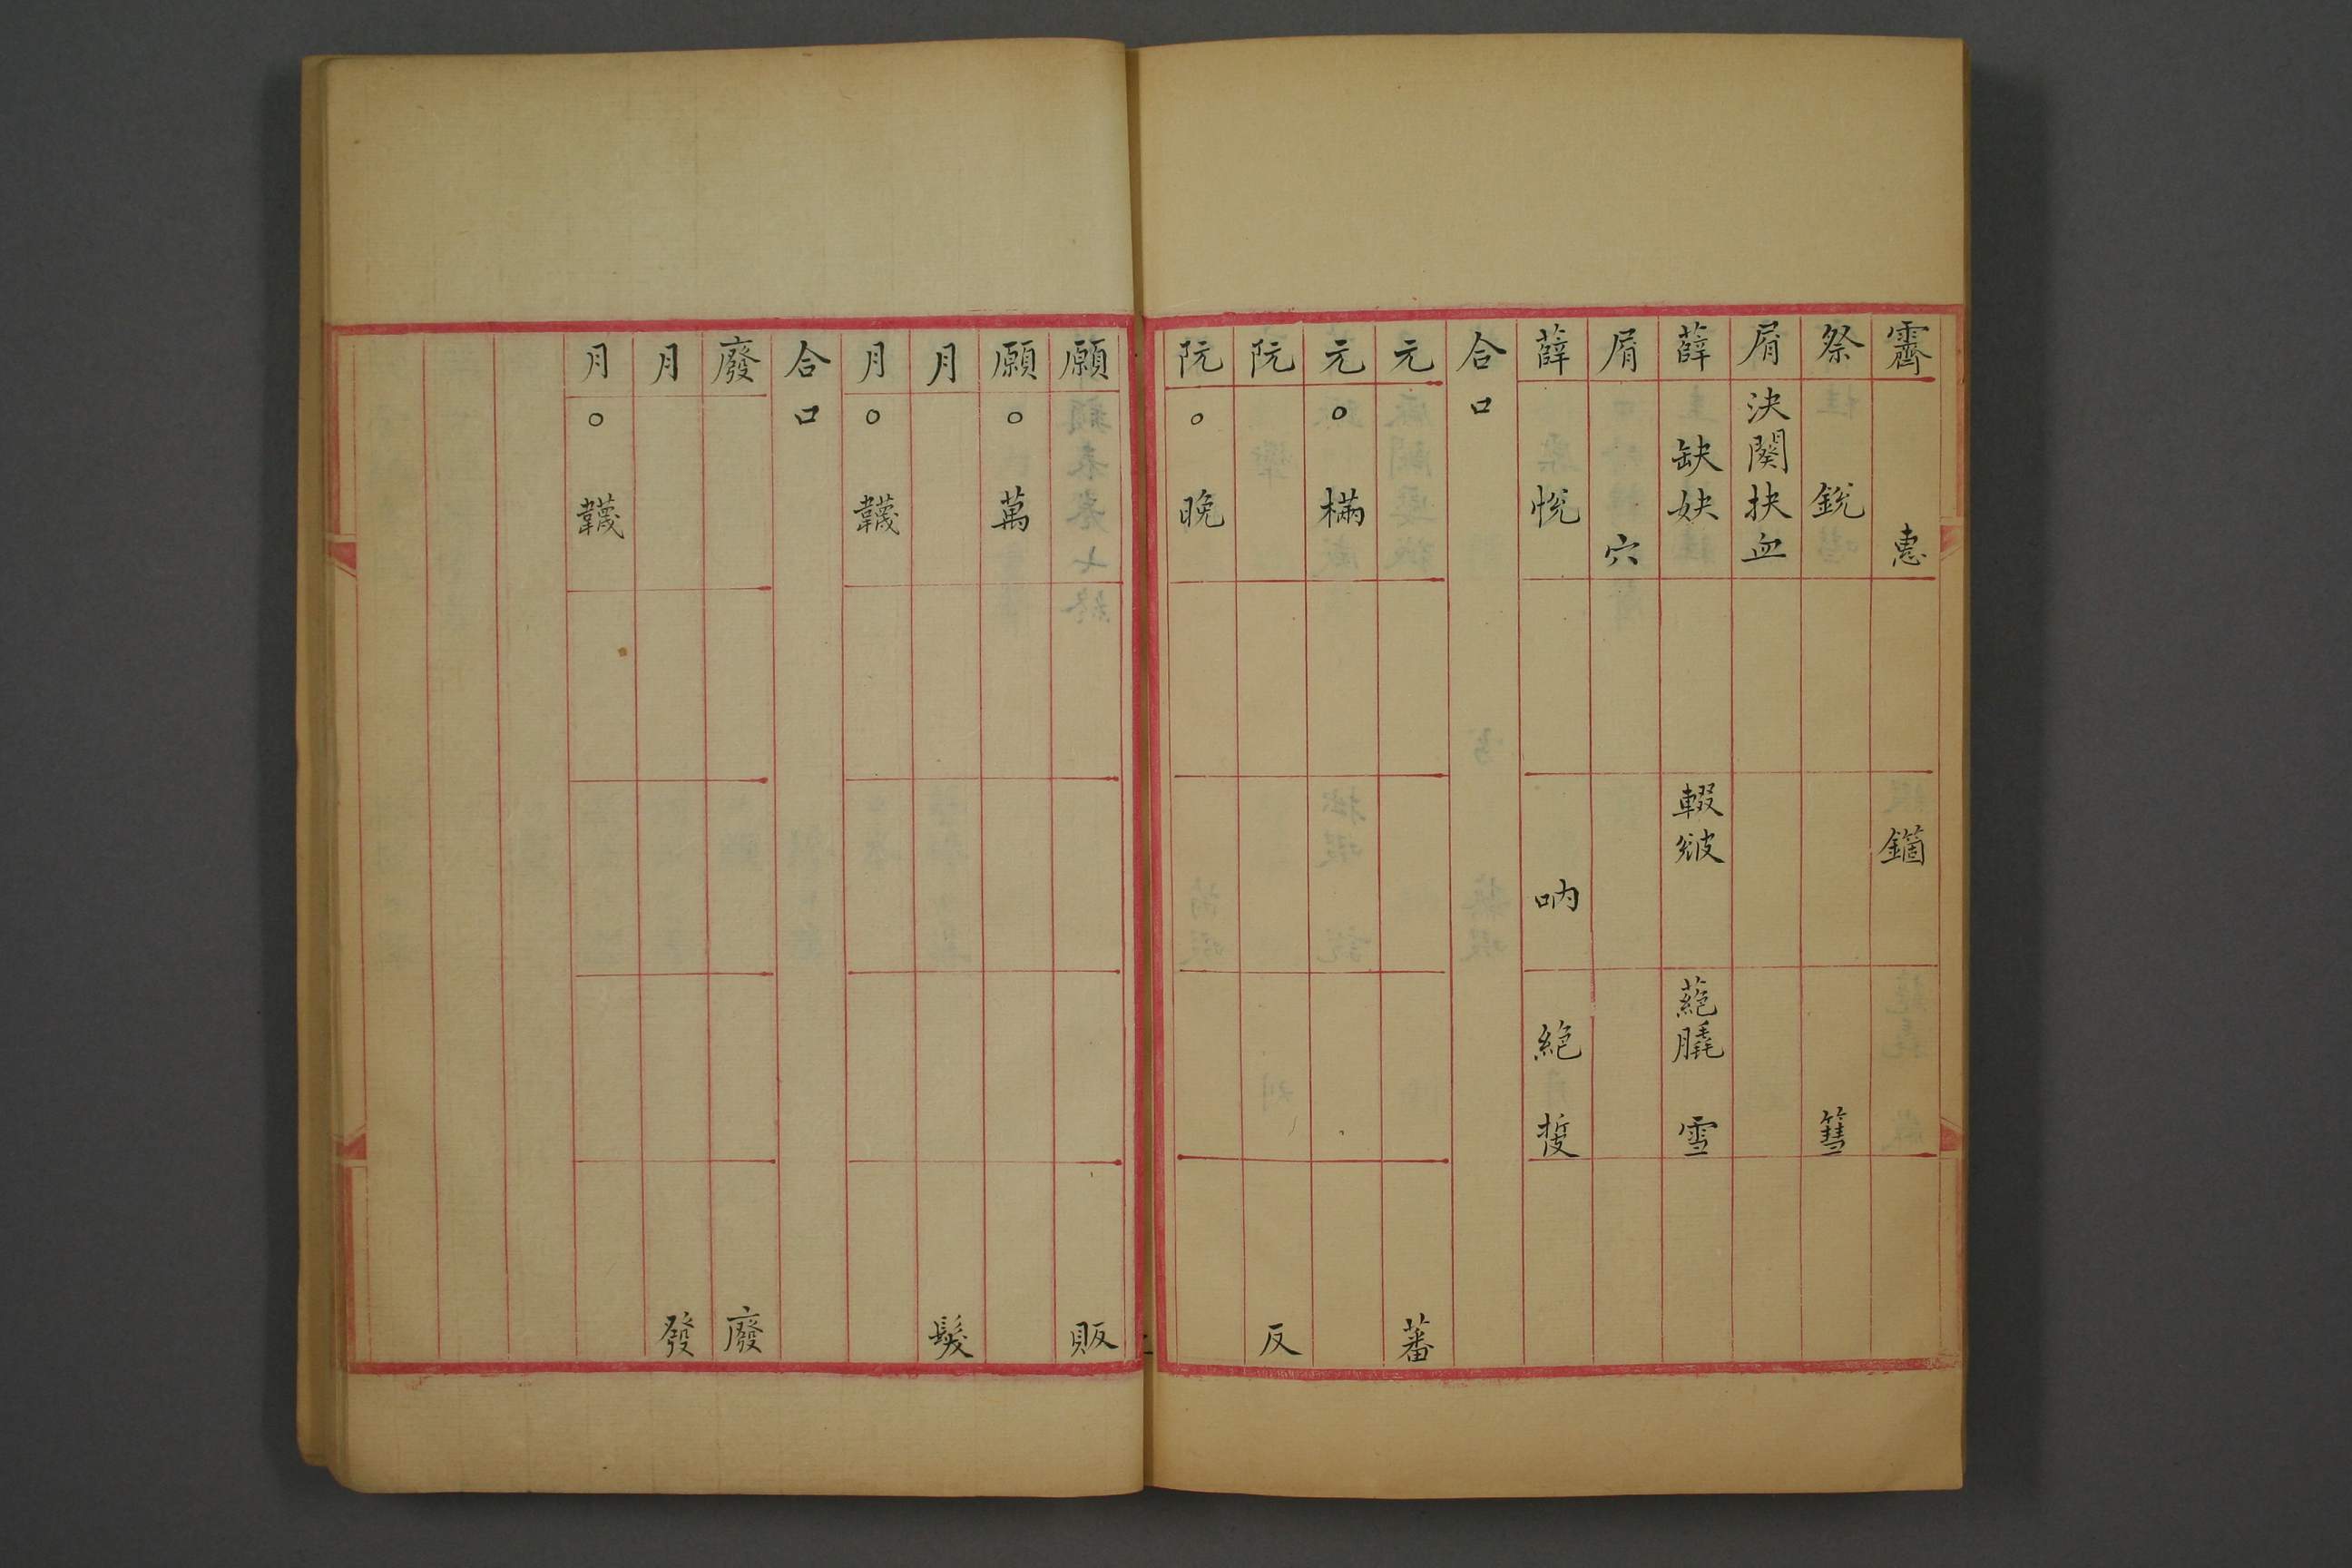 霽 惠 鏋
祭 銳 篲
屑 決闋抉血
薛 缺妜 輟㕟 蕝膬 雪
屑 穴
薛 悅 吶 絕 㨘
合口
元 蕃
元 ○ 樠
阮 反
阮 ○ 晚
願 販
願 ○ 萬
月 髮
月 ○ 韈
合口
廢 廢
月 發
月 ○ 韈